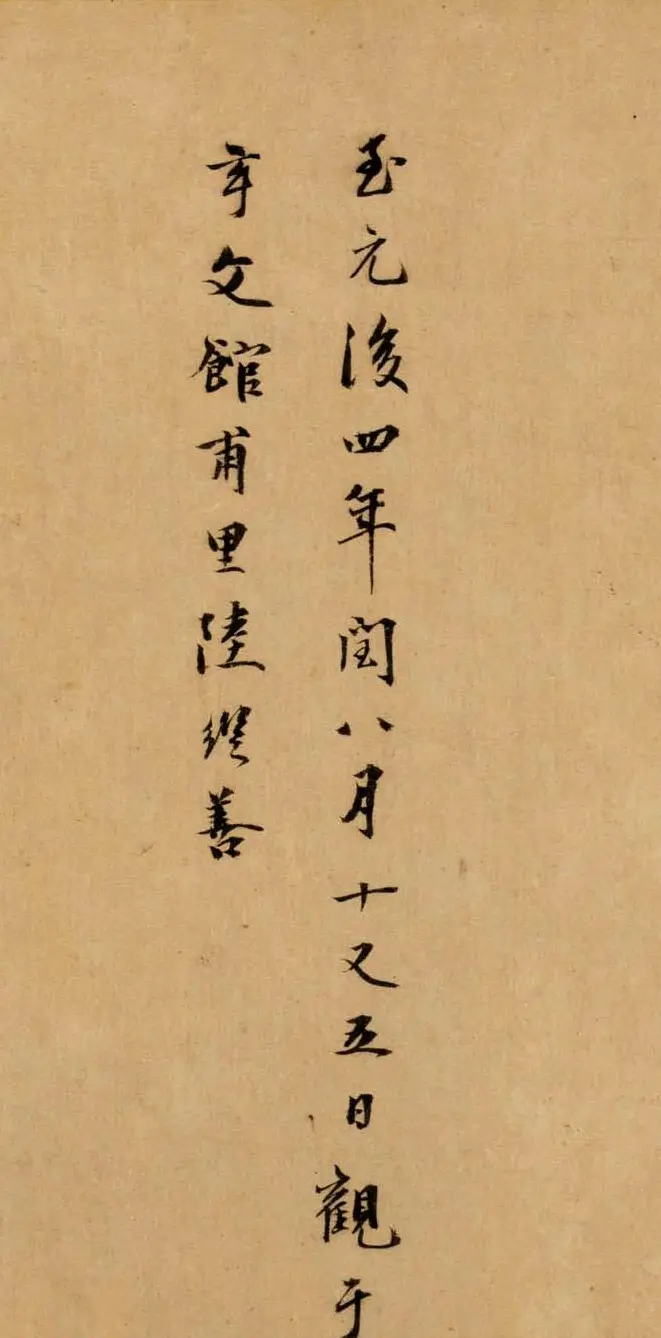 至元後四年閏八月十又五日觀于
玄文館甫里陸繼善